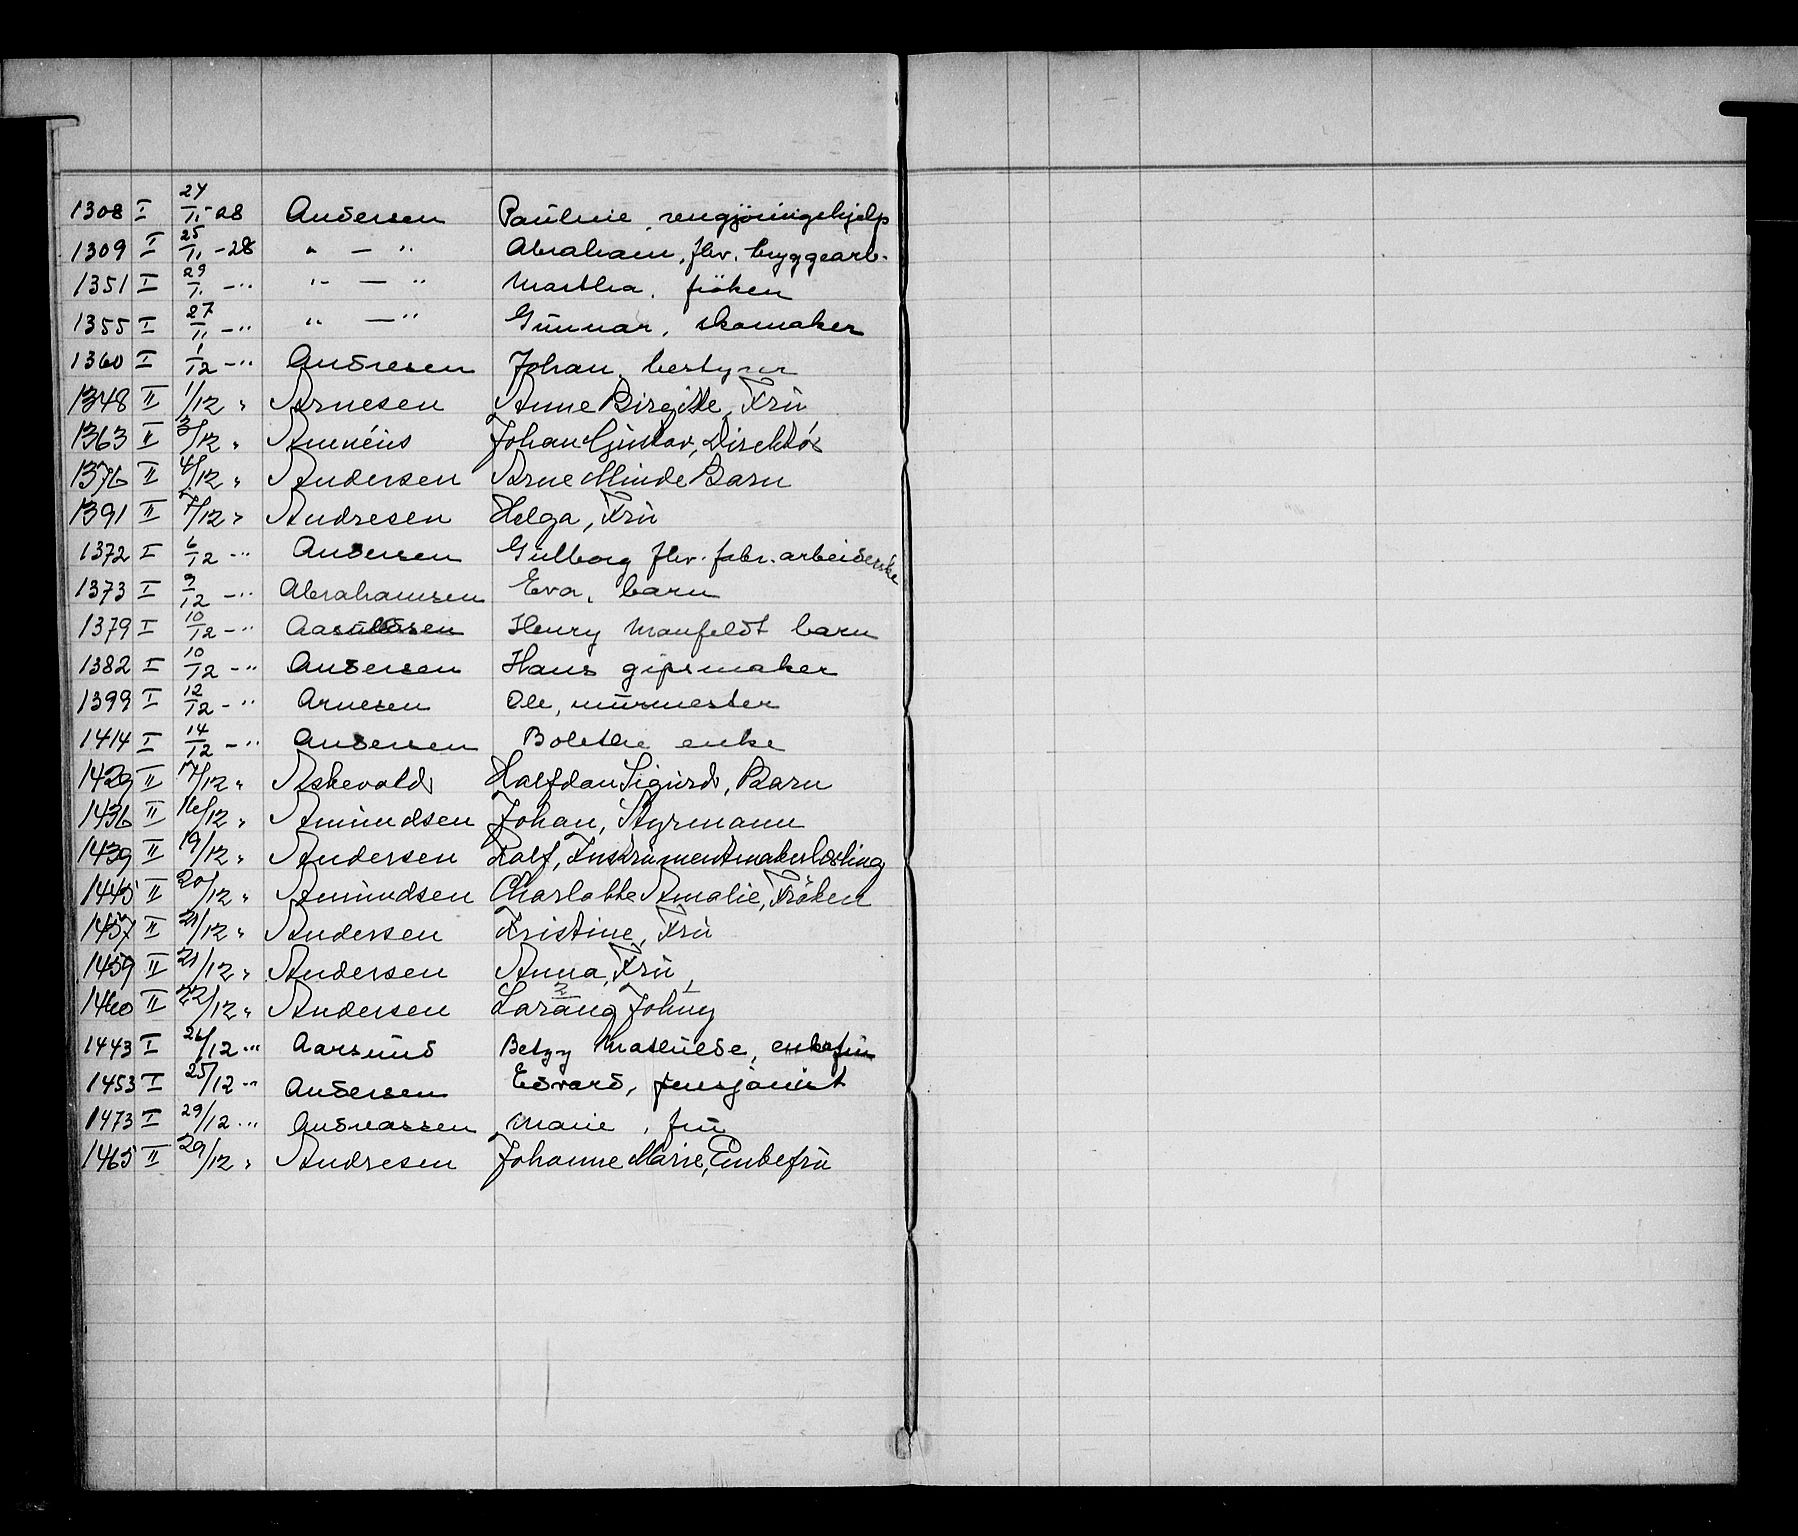 1308 I 24/11-28 Andersen Pauline, rengjøringshjelp
1309 I 25/11-28 " — " Abraham, fhv. bryggearb.
1351 I 29/11 -" " — " Martha, frøken
1355 I 27/11 -" " — " Gunnar, skomaker
1360 I 1/12 -" Andresen Johan, bestyrer
1348 II 1/12 " Arnesen Anne Birgitte, Fru
1363 II 3/12 " Amnéus Johan Gustav, Direktør
1376 II 4/12 " Andersen Arne Minde Barn
1391 II 7/12 " Andresen Helga, Fru
1372 I 6/12 -" Andersen Gulborg fhv. fabr. arbeiderske
1373 I 9/12 -" Abrahamsen Eva, barn
1379 I 10/12 -" Henry Manfeldt barn
1382 I 10/12 -" Andersen Hans gipsmaker
1399 I 12/12 -" Arnesen Ole, murmester
1414 I 14/12 -" Andersen Bolethe enke
1429 II 17/12 " Askevold Halfdan Sigurd, Barn
1436 II 16/12 " Amundsen Johan, Styrmann
1439 II 19/12 " Andersen Rolf, Instrumentmakerlærling
1445 II 20/12 " Amundsen Charlotte Amalie, Frøken
1457 II 21/12 " Andersen Kristine, Fru
1459 II 21/12 " Andersen Anna, Fru
1460 II 22/12 " Andersen Johny
1443 I 26/12 " Aarsund Betzy Mathilde, enkefru
1453 I 25/12 -" Andersen Edvard, pensjonist
1473 I 29/12 -" Andreassen Marie, fru
1465 II 29/12 " Andresen Johanne Marie, Enkefru